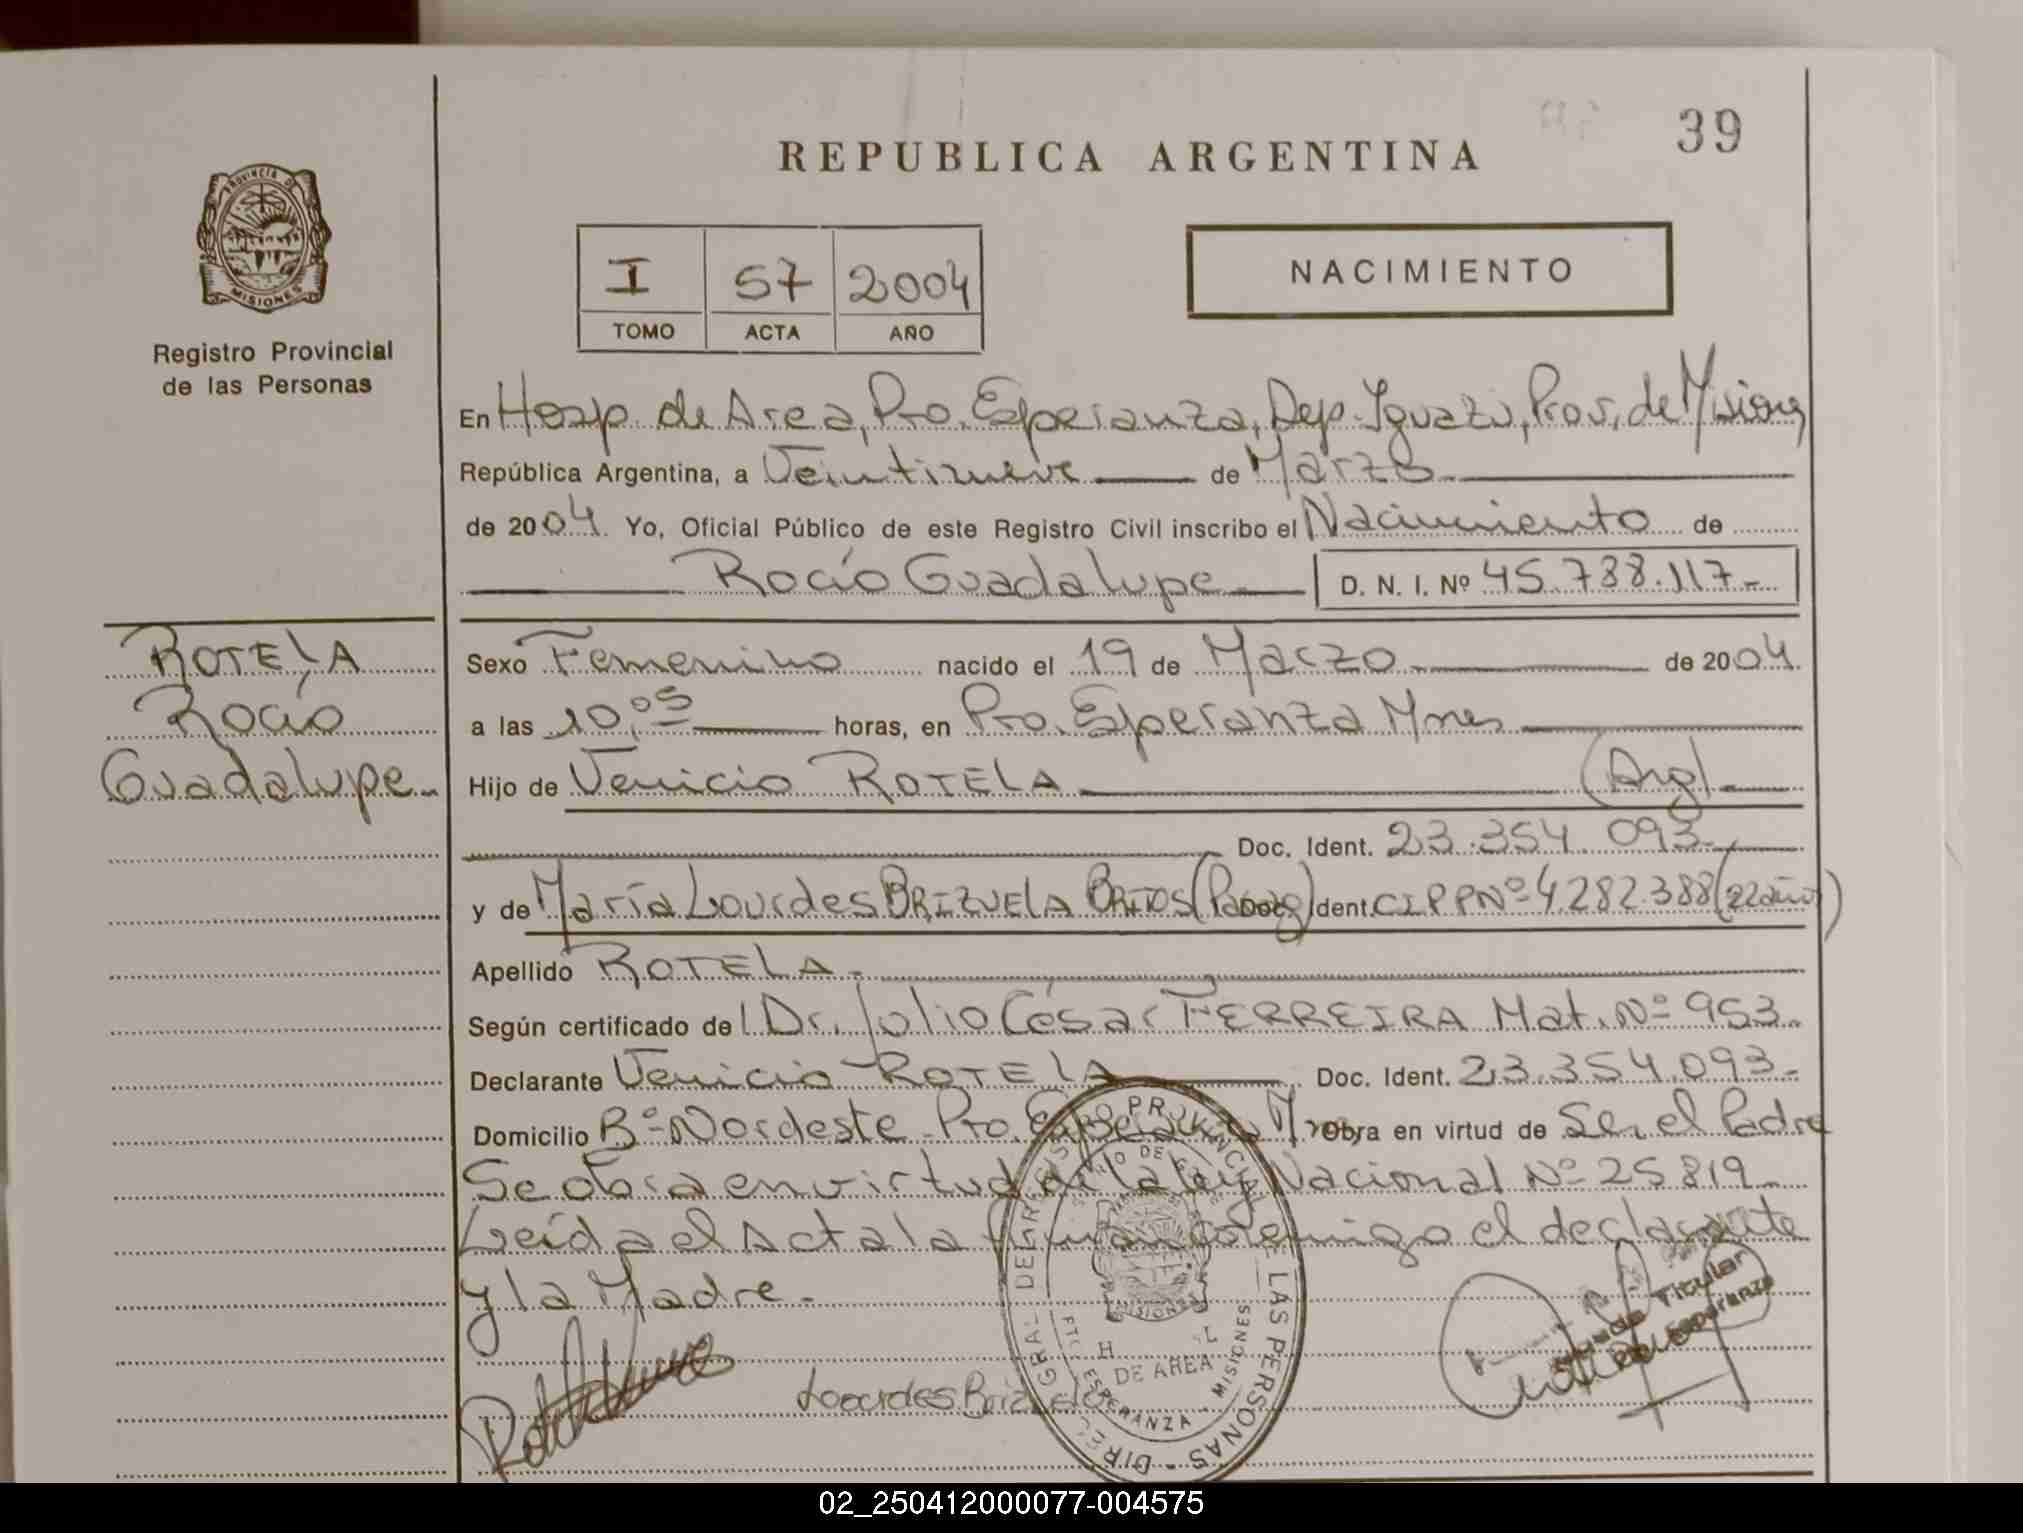 39
REPUBLICA ARGENTINA
PROVINCIA DE
MISIONES
Registro Provincial
de las Personas
I 57 2004
TOMO ACTA AÑO
NACIMIENTO
En Hosp. de Area, Pto. Esperanza, Dep. Iguazú, Prov. de Misiones
República Argentina, a Veintinueve de Marzo
de 2004. Yo, Oficial Público de este Registro Civil inscribo el Nacimiento de
Rocío Guadalupe D. N. I. Nº 45.788.117.-
ROTELA
Rocío
Guadalupe.-
Sexo Femenino nacido el 19 de Marzo de 2004.
a las 10,05 horas, en Pto. Esperanza Mnes
Hijo de Venicio ROTELA (Arg)
Doc. Ident. 23.354.093.-
y de María Lourdes BRIZUELA BRITOS (Parag) Doc. Ident. CIPPNº 4.282.388 (22 años)
Apellido ROTELA.-
Según certificado del Dr. Julio César FERREIRA Mat. Nº 953.
Declarante Venicio ROTELA Doc. Ident. 23.354.093.-
Domicilio Bº Nordeste - Pto. Esperanza Mnes Obra en virtud de Ser el Padre
Se obra en virtud de la ley Nacional Nº 25.819.-
Leída el Acta la firman conmigo el declarante
y la Madre.-
Lourdes Brizuela
DIREC. GRAL. DE REGISTRO PROVINCIAL DE LAS PERSONAS
MISIONES
DE AREA
ESPERANZA - MISIONES
Titular
Esperanza
02_250412000077-004575